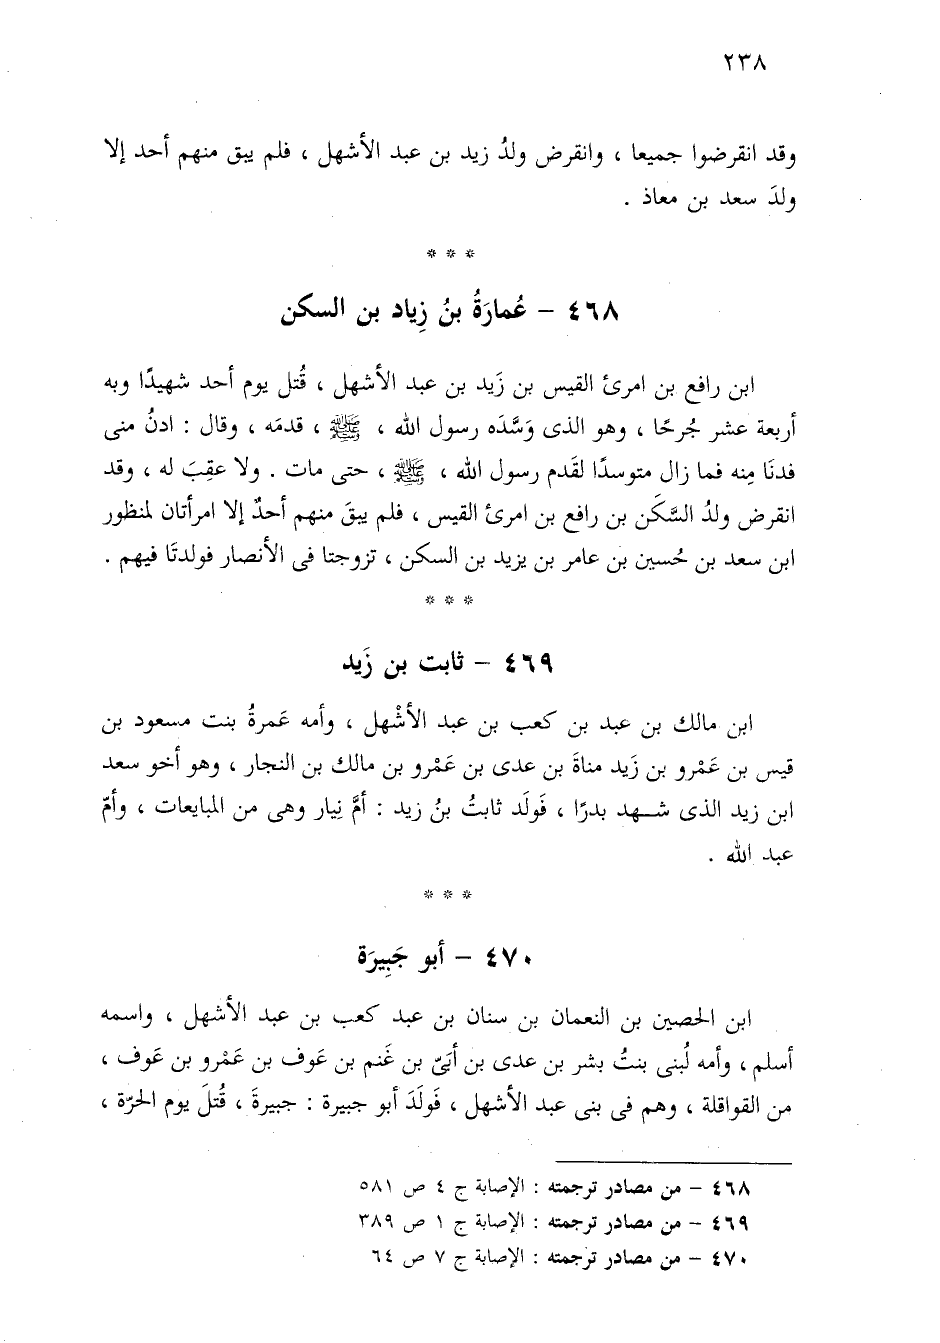 ٢٣٨
وقد انقرضوا جميعا ، وانقرض ولدُ زيد بن عبد الأشهل ، فلم يبق منهم أحد إلا
ولدَ سعد بن معاذ .
* * *
٤٦٨ – عُمارَةُ بنُ زِياد بن السكن
ابن رافع بن امرئ القيس بن زَيد بن عبد الأشهل ، قُتل يوم أحد شهيدًا وبه
أربعة عشر جُرحًا ، وهو الذى وَسَّدَه رسول الله ، ﷺ ، قدمَه ، وقال : ادنُ منى
فدنَا مِنه فما زال متوسدًا لقَدم رسول الله ، ﷺ ، حتى مات . ولا عقِبَ له ، وقد
انقرض ولدُ السَّكَن بن رافع بن امرئ القيس ، فلم يبقَ منهم أحدٌ إلا امرأتان لمنظور
ابن سعد بن حُسين بن عامر بن يزيد بن السكن ، تزوجتا فى الأنصار فولدتَا فيهم .
* * *
٤٦٩ – ثابت بن زَيد
ابن مالك بن عبد بن كعب بن عبد الأشْهل ، وأمه عَمرةُ بنت مسعود بن
قيس بن عَمْرو بن زَيد مناةَ بن عدى بن عَمْرو بن مالك بن النجار ، وهو أخو سعد
ابن زيد الذى شـهد بدرًا ، فَولَد ثابتُ بنُ زيد : أمَّ نِيار وهى من المبايعات ، وأمّ
عبد الله .
* * *
٤٧٠ – أبو جَبِيرَة
ابن الحصين بن النعمان بن سنان بن عبد كعب بن عبد الأشهل ، واسمه
أسلم ، وأمه لُبنى بنتُ بشر بن عدى بن أُبَىّ بن غَنم بن عَوف بن عَمْرو بن عَوف ،
من القواقلة ، وهم فى بنى عبد الأشهل ، فَولَدَ أبو جبيرة : جبيرةَ ، قُتلَ يوم الحَرّة ،
٤٦٨ – من مصادر ترجمته : الإصابة ج ٤ ص ٥٨١
٤٦٩ – من مصادر ترجمته : الإصابة ج ١ ص ٣٨٩
٤٧٠ – من مصادر ترجمته : الإصابة ج ٧ ص ٦٤